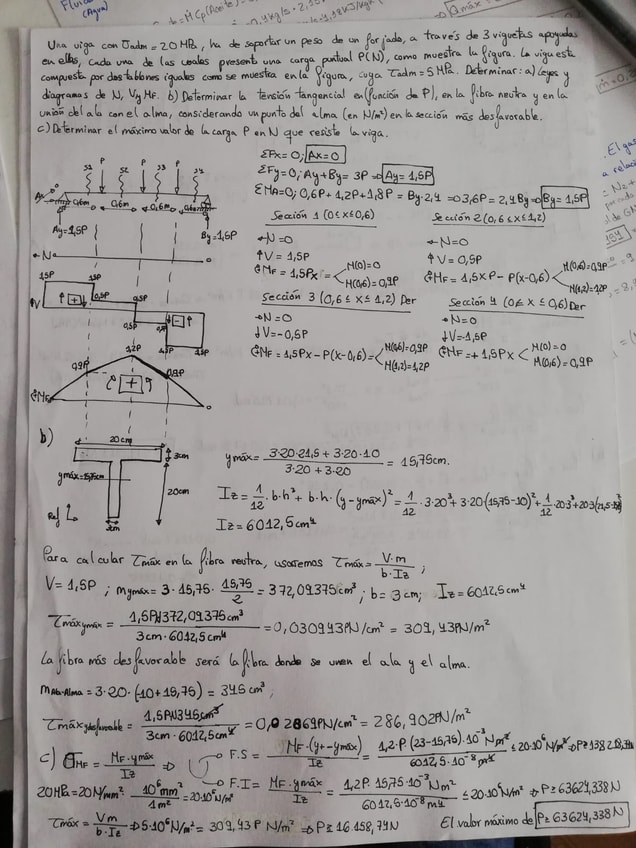 Una viga con σadm = 20 MPa, ha de soportar un peso de un forjado, a través de 3 viguetas apoyadas
en ellas, cada una de las cuales presenta una carga puntual P(N), como muestra la figura. La viga está
compuesta por dos tablones iguales como se muestra en la figura, cuya τadm = 5 MPa. Determinar: a) Leyes y
diagramas de N, V y MF. b) Determinar la tensión tangencial en (función de P), en la fibra neutra y en la
unión del ala con el alma, considerando un punto del alma (en N/m²) en la sección más desfavorable.
c) Determinar el máximo valor de la carga P en N que resiste la viga.
ΣFx = 0; Ax = 0
ΣFy = 0; Ay + By = 3P ⇒ Ay = 1,5P
ΣMA = 0; 0,6P + 1,2P + 1,8P = By·2,4 ⇒ 3,6P = 2,4By ⇒ By = 1,5P
S1 P S2 P S3 P S4
Ax
0,6m 0,6m 0,6m 0,6m
Ay = 1,5P
By = 1,5P
N
Sección 1 (0 ≤ x ≤ 0,6)
N = 0
V = 1,5P
MF = 1,5Px
M(0) = 0
M(0,6) = 0,9P
Sección 2 (0,6 ≤ x ≤ 1,2)
N = 0
V = 0,5P
MF = 1,5xP - P(x-0,6)
M(0,6) = 0,9P
M(1,2) = 1,2P
Sección 3 (0,6 ≤ x ≤ 1,2) Der
N = 0
V = -0,5P
MF = 1,5Px - P(x-0,6) =
M(0,6) = 0,9P
M(1,2) = 1,2P
Sección 4 (0 ≤ x ≤ 0,6) Der
N = 0
V = -1,5P
MF = +1,5Px
M(0) = 0
M(0,6) = 0,9P
V
1,5P 1,5P
0,5P 0,5P
0,5P
1,5P 1,5P
1,2P
0,9P 0,9P
MF
b)
20cm
3cm
ymáx = 15,75cm
20cm
Ref
3cm
ymáx = 3·20·21,5 + 3·20·10 / 3·20 + 3·20 = 15,75cm.
Iz = 1/12 · b·h³ + b·h·(y - ymáx)² = 1/12 · 3·20³ + 3·20(15,75-10)² + 1/12 · 20·3³ + 20·3(21,5-15,75)²
Iz = 6012,5cm⁴
Para calcular τmáx en la fibra neutra, usaremos τmáx = V·m / b·Iz ;
V = 1,5P ; mymáx = 3·15,75· 15,75/2 = 372,09375cm³ ; b = 3cm; Iz = 6012,5cm⁴
τmáx ymáx = 1,5PN 372,09375cm³ / 3cm·6012,5cm⁴ = 0,030943PN/cm² = 309,43PN/m²
La fibra más desfavorable será la fibra donde se unen el ala y el alma.
mAla-Alma = 3·20·(10+15,75) = 345cm³ ;
τmáx ydesfavorable = 1,5PN 345cm³ / 3cm·6012,5cm⁴ = 0,02869PN/cm² = 286,902PN/m²
c) σMF = MF·ymáx / Iz ⇒
F.S = MF·(y - ymáx) / Iz = 1,2·P·(23-15,75)·10⁻³Nm² / 6012,5·10⁻⁸m⁴ ≤ 20·10⁶N/m²
F.I = MF·ymáx / Iz = 1,2P·15,75·10⁻³Nm² / 6012,5·10⁻⁸m⁴ ≤ 20·10⁶N/m² ⇒ P≥63624,338N
20MPa = 20N/mm² · 10⁶mm²/1m² = 20·10⁶N/m²
τmáx = Vm / b·Iz ⇒ 5·10⁶N/m² = 309,43P N/m² ⇒ P≥16.158,74N
El valor máximo de P≥63624,338N